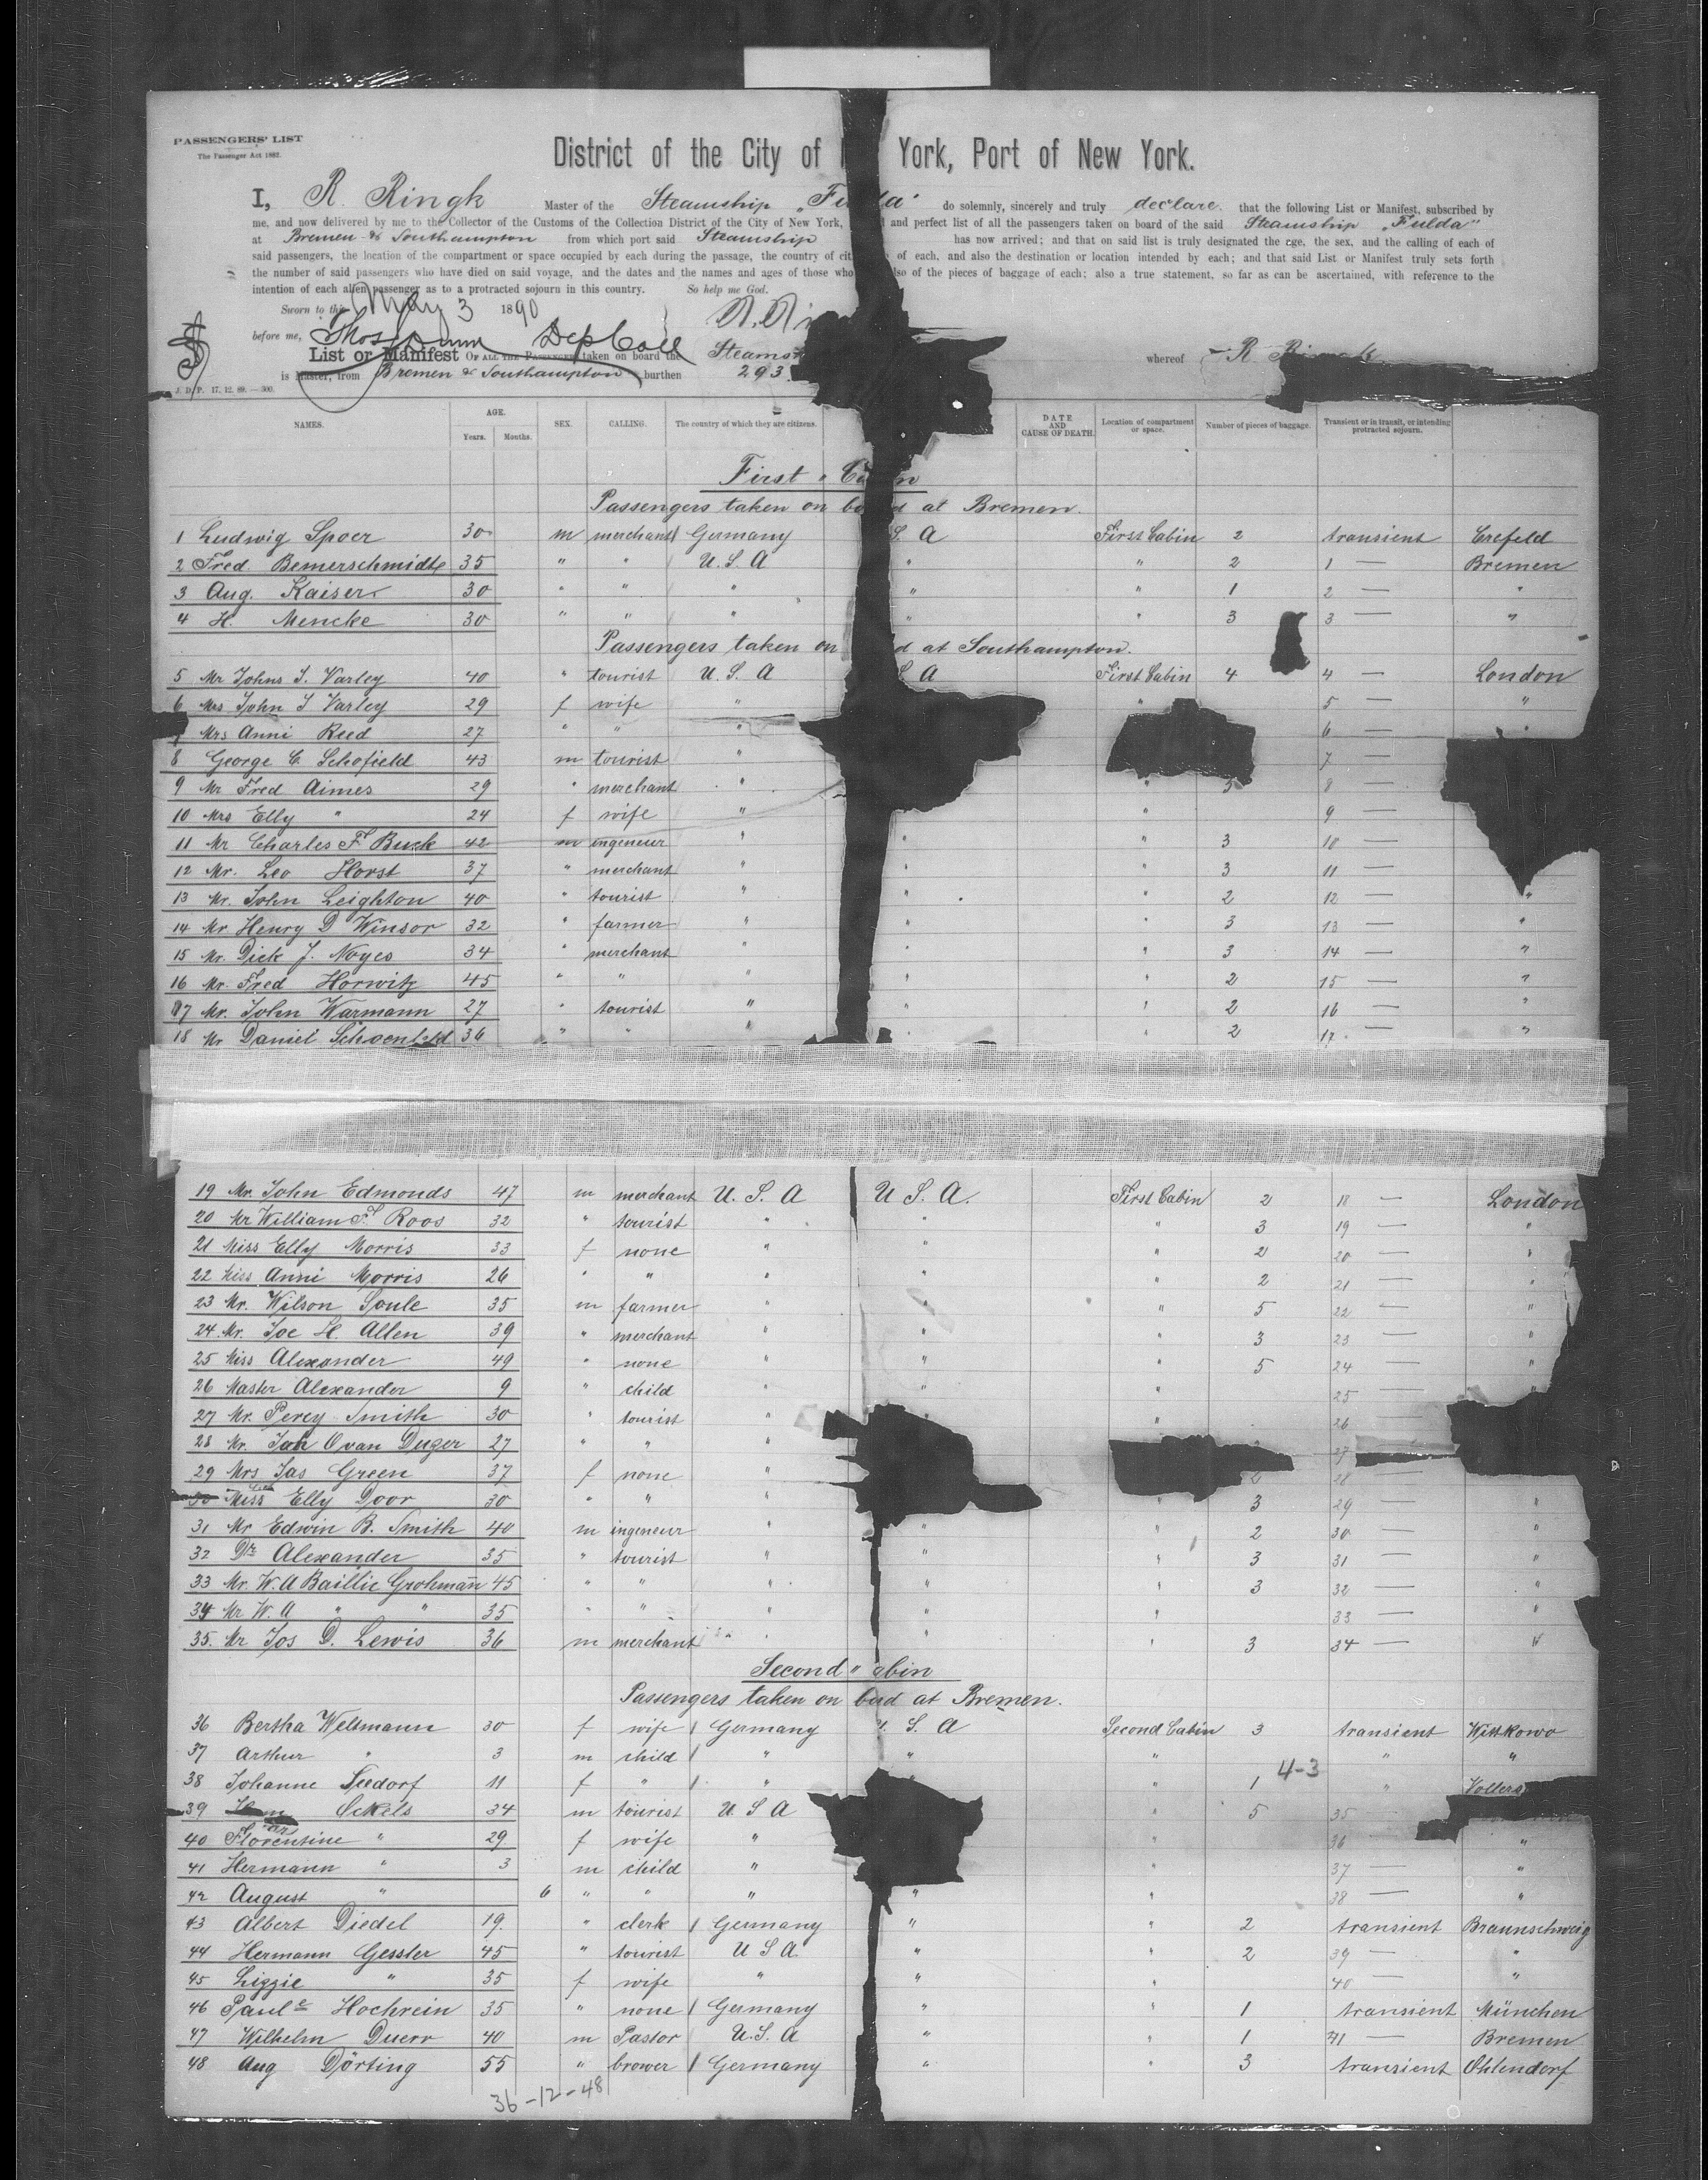 PASSENGERS' LIST
The Passenger Act 1882.
District of the City of York, Port of New York.
I, R. Ringk Master of the Steamship „Fulda" do solemnly, sincerely and truly declare. that the following List or Manifest, subscribed by
me, and now delivered by me to the Collector of the Customs of the Collection District of the City of New York, and perfect list of all the passengers taken on board of the said Steamship „Fulda"
at Bremen & Southampton from which port said Steamship has now arrived; and that on said list is truly designated the cge, the sex, and the calling of each of
said passengers, the location of the compartment or space occupied by each during the passage, the country of of each, and also the destination or location intended by each; and that said List or Manifest truly sets forth
the number of said passengers who have died on said voyage, and the dates and the names and ages of those who also of the pieces of baggage of each; also a true statement, so far as can be ascertained, with reference to the
intention of each alien passenger as to a protracted sojourn in this country. So help me God.
Sworn to this May 3 1890
before me, Thos Dunn Dep Coll
List or Manifest OF ALL THE PASSENGERS taken on board the whereof R Ringk
is Master, from Bremen & Southampton burthen 293
J. D. P. 17. 12. 89. — 500.
NAMES. AGE. Years. Months. SEX. CALLING. The country of which they are citizens. DATE AND CAUSE OF DEATH. Location of compartment or space. Number of pieces of baggage. Transient or in transit, or intending protracted sojourn.
First " Cabin
Passengers taken on board at Bremen.
1 Ludwig Spoer 30 m merchant Germany S. A First Cabin 2 transient Crefeld
2 Fred. Bemerschmidt 35 " " U. S. A " " 2 1 — Bremen
3 Aug. Kaiser 30 " " " " " 1 2 — "
4 H. Mencke 30 " " " " " 3 3 — "
Passengers taken on d at Southampton.
5 Mr Johns S. Varley 40 " tourist U. S. A S A First Cabin 4 4 — London
6 Mrs John S Varley 29 f wife " " 5 — "
Mrs Anni Reed 27 " " " 6 — "
8 George C. Schofield 43 m tourist " 7 —
9 Mr Fred Aimes 29 " merchant " " 5 8 —
10 Mrs Elly " 24 f wife " " 9 —
11 Mr Charles F. Buck 42 m ingeneur " " " 3 10 —
12 Mr. Leo Horst 37 " merchant " " " 3 11 —
13 Mr. John Leighton 40 " tourist " " " 2 12 — "
14 Mr Henry D Winsor 32 " farmer " " " 3 13 — "
15 Mr. Dick J. Noyes 34 " merchant " " " 3 14 — "
16 Mr. Fred Horwitz 45 " " " " " 2 15 — "
17 Mr. John Warmann 27 " tourist " " " 2 16 — "
18 Mr Daniel Schoenfeld 36 " " " " " 2 17 — "
19 Mr. John Edmonds 47 m merchant U. S. A U S. A. First Cabin 2 18 — London
20 Mr William F. Roos 32 " tourist " " " 3 19 — "
21 Miss Elly Morris 33 f none " " " 2 20 — "
22 Miss Anni Morris 26 " " " " " 2 21 — "
23 Mr. Wilson Soule 35 m farmer " " " 5 22 — "
24 Mr. Joe H. Allen 39 " merchant " " " 3 23 — "
25 Miss Alexander 49 " none " " " 5 24 — "
26 Master Alexander 9 " child " " " 25 — "
27 Mr. Percy Smith 30 " tourist " " " 26 —
28 Mr. O van Duzer 27 " " " 27
29 Mrs Jas Green 37 f none " 2 28 —
30 Miss Elly Door 30 " " " " 3 29 — "
31 Mr Edwin B. Smith 40 m ingeneur " " " 2 30 — "
32 Dr Alexander 35 " tourist " " " 3 31 — "
33 Mr. W. A Baillie Grohmann 45 " " " " " 3 32 — "
34 Mr W. A " " 35 " " " " " 33 — "
35. Mr Jos D. Lewis 36 m merchant " " " 3 34 — "
Second " abin
Passengers taken on bord at Bremen.
36 Bertha Weltmann 30 f wife Germany U. S. A Second Cabin 3 transient Wittkowo
37 Arthur " 3 m child " " " " "
4-3
38 Johanne Seedorf 11 f " " " 1 " Vollers
39 Ockels 34 m tourist U S A " 5 35
40 Florentine " 29 f wife " " 36 — "
41 Hermann " 3 m child " " 37 — "
42 August " 6 " " " " " 38 — "
43 Albert Diedel 19. " clerk Germany " " 2 transient Braunschweig
44 Hermann Gessler 45 " tourist U S A " " 2 39 — "
45 Lizzie " 35 f wife " " " 40 — "
46 Paule Hochrein 35 " none Germany " " 1 transient München
47 Wilhelm Duerr 40 m Pastor U. S. A " " 1 41 — Bremen
48 Aug Dörting 55 " brower Germany " " 3 transient Ohlendorf
36-12-48